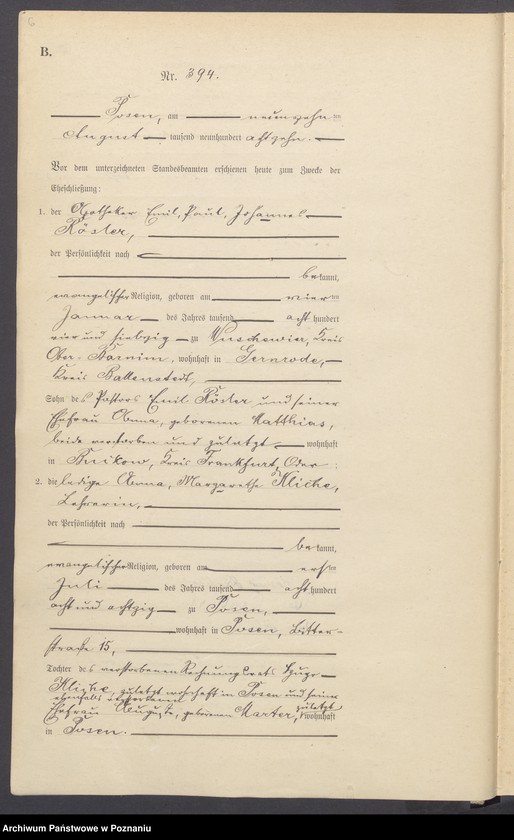 B.
Nr. 394.
Posen, am neunzehnten
August tausend neunhundert achtzehn.
Vor dem unterzeichneten Standesbeamten erschienen heute zum Zwecke der
Eheschließung:
1. der Apotheker Emil, Paul, Johannes
Köster,
der Persönlichkeit nach
bekannt,
evangelischer Religion, geboren am vierten
Januar des Jahres tausend acht hundert
vier und siebzig zu Kreis
Ober-Barnim, wohnhaft in Gernrode,
Kreis Ballenstedt,
Sohn des Pastors Emil Köster und seiner
Ehefrau Anna, geborenen Matthias,
beide verstorben und zuletzt wohnhaft
in Kreis Frankfurt Oder;
2. die ledige Anna, Margarethe Kliche,
Lehrerin,
der Persönlichkeit nach
bekannt,
evangelischer Religion, geboren am ersten
Juli des Jahres tausend acht hundert
acht und achtzig zu Posen,
wohnhaft in Posen, Ritter-
straße 15,
Tochter des verstorbenen Rechnungsrats Hugo
Kliche, zuletzt wohnhaft in Posen, und seiner
ebenfalls verstorbenen
Ehefrau Auguste, geborenen Marter, zuletzt wohnhaft
in Posen.
Archiwum Państwowe w Poznaniu